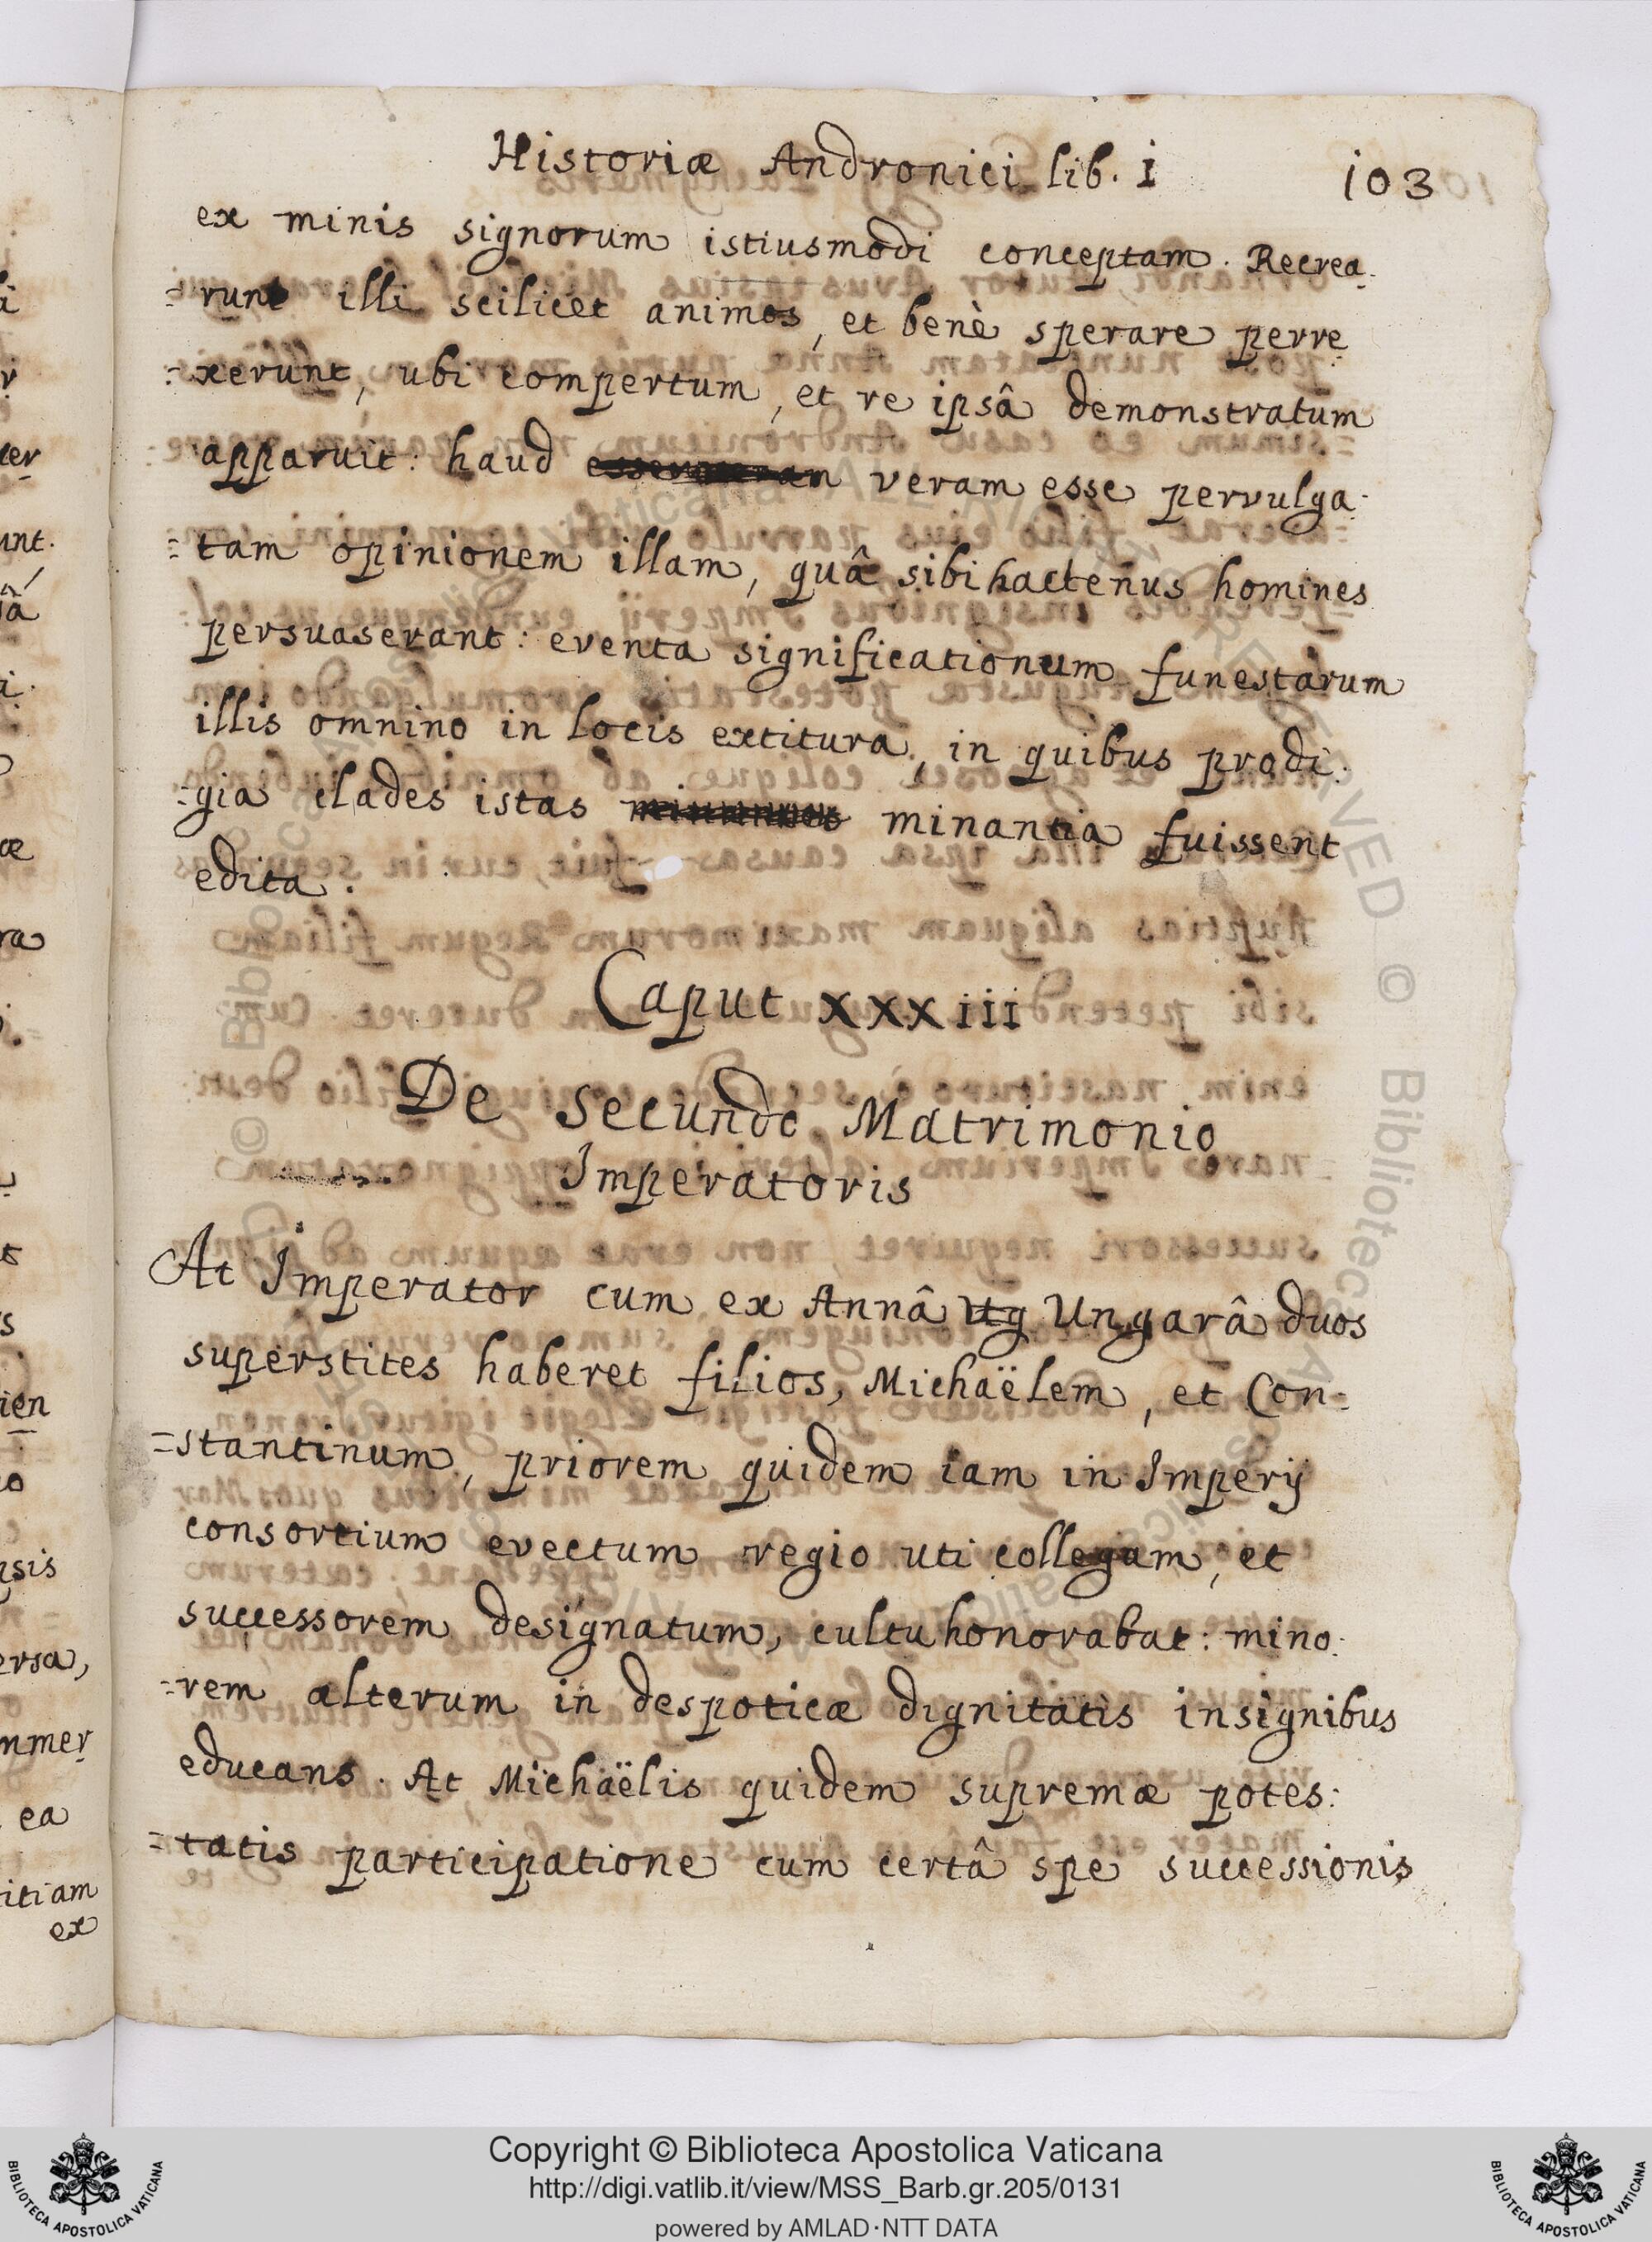 Historiæ Andronici lib. I
103
ex minis signorum istiusmodi conceptam. Recrea-
=runt illi scilicet animos, et benè sperare perre-
=xerunt, ubi compertum, et re ipsâ demonstratum
apparuit: haud veram esse pervulga-
=tam opinionem illam, quâ sibi hactenus homines
persuaserant: eventa significationum funestarum
illis omnino in locis extitura, in quibus prodi-
=gia clades istas minantia fuissent
edita.
Caput XXXIII
De secundo Matrimonio
Imperatoris
At Imperator cum ex Annâ Ug Ungarâ duos
superstites haberet filios, Michaëlem, et Con-
=stantinum, priorem quidem iam in Imperij
consortium evectum regio uti collegam, et
successorem designatum, cultu honorabat: mino-
=rem alterum in despoticæ dignitatis insignibus
educans. At Michaëlis quidem supremæ potes-
=tatis participatione cum certâ spe successionis
Copyright © Biblioteca Apostolica Vaticana
http://digi.vatlib.it/view/MSS_Barb.gr.205/0131
powered by AMLAD·NTT DATA
BIBLIOTECA APOSTOLICA VATICANA
BIBLIOTECA APOSTOLICA VATICANA